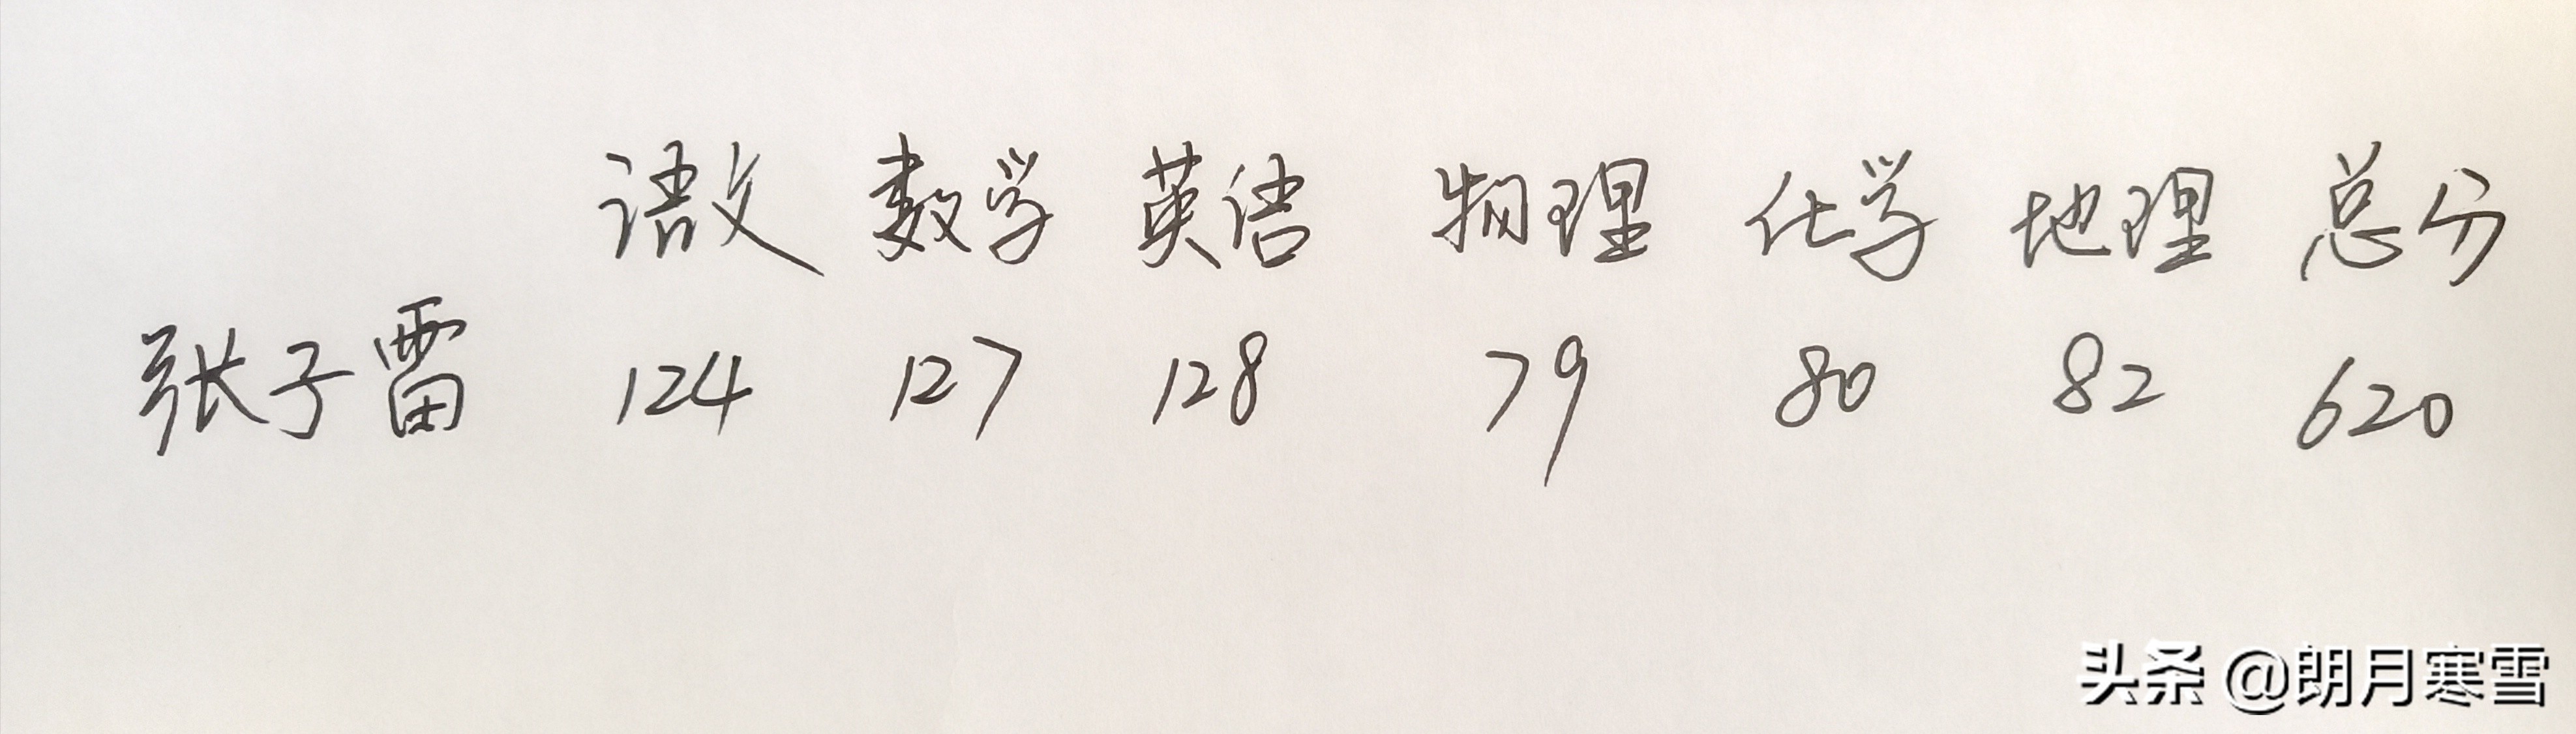 语文 数学 英语 物理 化学 地理 总分
张子雷 124 127 128 79 80 82 620
头条 @朗月寒雪